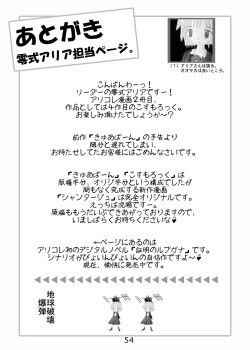 あとがき
零式アリア担当ページ。
(↑)アリアさんは語る。
オオサカは良いところ。
こんばんわーっ!
リーダーの零式アリアですー!
アリコレ漫画2冊目、
作品としては4作目のこすもろっく。
お楽しみ頂けたでしょうか~?
前作『きゅあばーん』の予告より
随分と遅れてしまい、
お待たせしてたお客様にはごめんなさいです。
『きゅあばーん』『こすもろっく』は
版権半分、オリジ半分という構成でしたが
間もなく完成する新作漫画
『シャンタージュ』は完全オリジナルです。
えっちは控端ですー。
原稿ももうだいぶできあがっておりますので、
いましばらくお待ちくださいな♥
←ページにあるのは
アリコレ初のデジタルノベル『証明のルブガナ』です。
シナリオがぴょんぴょんいんの自信作ですよ~♥
現在、愉快に発売中です。
地球破壊
爆弾
54